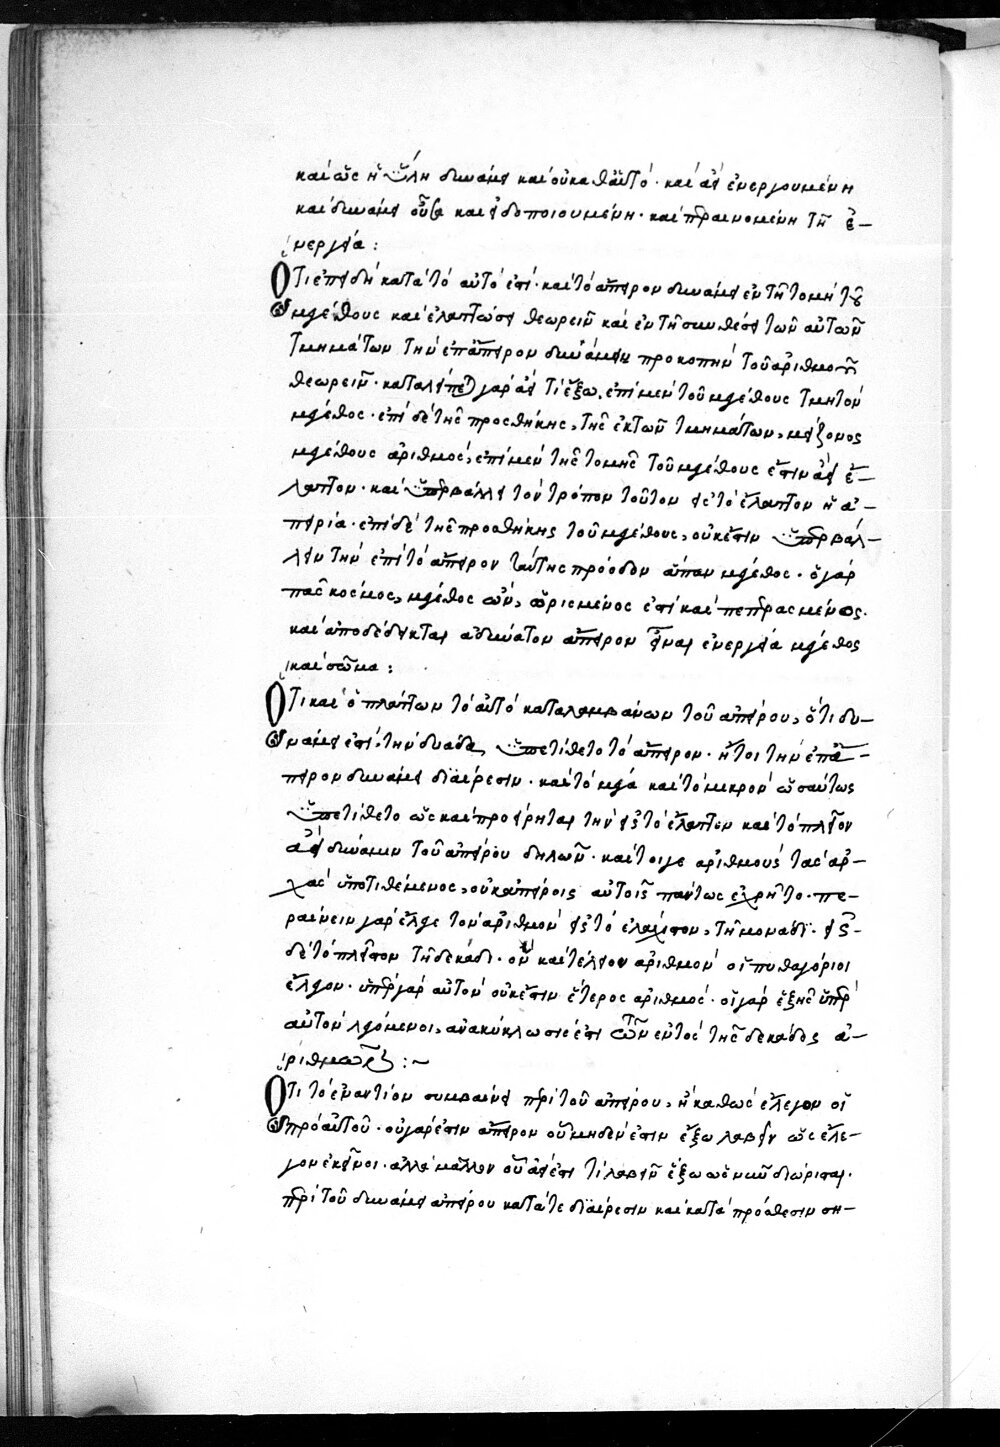 καὶ ὡς ἡ ὕλη δυνάμει καὶ οὐ καθ' αὑτό· καὶ ἀεὶ ἐνεργουμένη
καὶ δυνάμει οὖσα καὶ εἰδοποιουμένη· καὶ περαινομένη τῇ ἐ-
νεργείᾳ:
Ὅτι ἐπειδὴ κατὰ τὸ αὐτό ἐστι· καὶ τὸ ἄπειρον δυνάμει ἐν τῇ τομῇ τοῦ
μεγέθους καὶ ἐλαττώσει θεωρεῖν καὶ ἐν τῇ συνθέσει τῶν αὐτῶν
τμημάτων τὴν ἐπ' ἄπειρον δυνάμει προκοπὴν τοῦ ἀριθμοῦ
θεωρεῖν· καταλείπεται γὰρ ἀεί τι ἔξω, ἐπὶ μὲν τοῦ μεγέθους τμητὸν
μέγεθος· ἐπὶ δὲ τῆς προσθήκης, τῆς ἐκ τῶν τμημάτων, μείζονος
μεγέθους ἀριθμός, ἐπὶ μὲν τῆς τομῆς τοῦ μεγέθους ἔστιν ἀεὶ ἔ-
λαττον· καὶ ὑπερβάλλει τὸν τρόπον τοῦτον εἰς τὸ ἔλαττον ἡ ἀ-
πειρία· ἐπὶ δὲ τῆς προσθήκης τοῦ μεγέθους, οὐκ ἔστιν ὑπερβάλ-
λειν τὴν ἐπὶ τὸ ἄπειρον ταύτης πρόοδον ἅπαν μέγεθος· ὁ γὰρ
πᾶς κόσμος, μέγεθος ὤν, ὡρισμένος ἐστὶ καὶ πεπερασμένος·
καὶ ἀποδέδεικται ἀδύνατον ἄπειρον εἶναι ἐνεργείᾳ μέγεθος
καὶ σῶμα:
Ὅτι καὶ ὁ πλάττων τὸ αὐτὸ καταλαμβάνων τοῦ ἀπείρου, ὅτι δυ-
νάμει ἐστί, τὴν δυάδα ὑπετίθετο τὸ ἄπειρον· ἤτοι τὴν ἐπ' ἄ-
πειρον δυνάμει διαίρεσιν· καὶ τὸ μέγα καὶ τὸ μικρὸν ὡσαύτως
ὑπετίθετο ὡς καὶ προείρηται τὴν εἰς τὸ ἔλαττον καὶ τὸ πλεῖον
ἀεὶ δύναμιν τοῦ ἀπείρου δηλῶν· καίτοιγε ἀριθμοὺς τὰς ἀρ-
χὰς ὑποτιθέμενος, οὐκ ἀπείροις αὐτοῖς πάντως ἐχρῆτο· πε-
ραίνειν γὰρ ἔλεγε τὸν ἀριθμὸν εἰς τὸ ἐλάχιστον, τῇ μονάδι· εἰς
δὲ τὸ πλεῖστον τῇ δεκάδι· ὃν καὶ τέλειον ἀριθμὸν οἱ πυθαγόριοι
ἔλεγον· ὑπὲρ γὰρ αὐτὸν οὐκ ἔστιν ἕτερος ἀριθμός· οἱ γὰρ ἑξῆς ὑπὲρ
αὐτὸν λεγόμενοι, ἀνακύκλωσίς ἐστι τῶν ἐντὸς τῆς δεκάδος ἀ-
ριθμῶν:~
Ὅτι τὸ ἐναντίον συμβαίνει περὶ τοῦ ἀπείρου, ἢ καθὼς ἔλεγον οἱ
πρὸ αὐτοῦ· οὐ γάρ ἐστιν ἄπειρον οὗ μηδέν ἐστιν ἔξω λαβεῖν ὡς ἔλε-
γον ἐκεῖνοι· ἀλλὰ μᾶλλον οὗ ἀεί ἐστί τι λαβεῖν ἔξω ὡς νῦν διώρισται·
περὶ τοῦ δυνάμει ἀπείρου κατά τε διαίρεσιν καὶ κατὰ πρόσθεσιν ση-